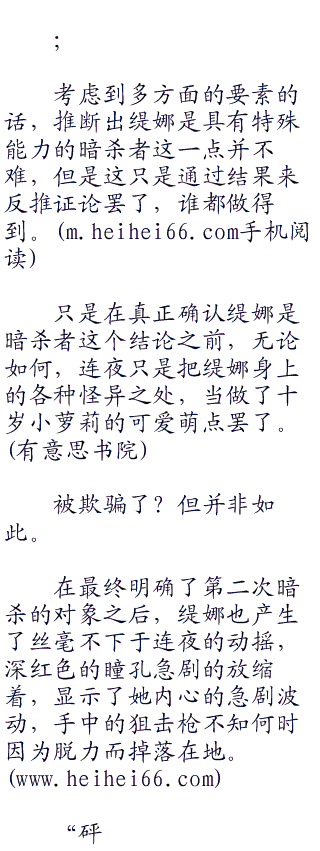 ;
考虑到多方面的要素的
话，推断出缇娜是具有特殊
能力的暗杀者这一点并不
难，但是这只是通过结果来
反推证论罢了，谁都做得
到。(m.heihei66.com手机阅
读)
只是在真正确认缇娜是
暗杀者这个结论之前，无论
如何，连夜只是把缇娜身上
的各种怪异之处，当做了十
岁小萝莉的可爱萌点罢了。
(有意思书院)
被欺骗了？但并非如
此。
在最终明确了第二次暗
杀的对象之后，缇娜也产生
了丝毫不下于连夜的动摇，
深红色的瞳孔急剧的放缩
着，显示了她内心的急剧波
动，手中的狙击枪不知何时
因为脱力而掉落在地。
(www.heihei66.com)
“砰